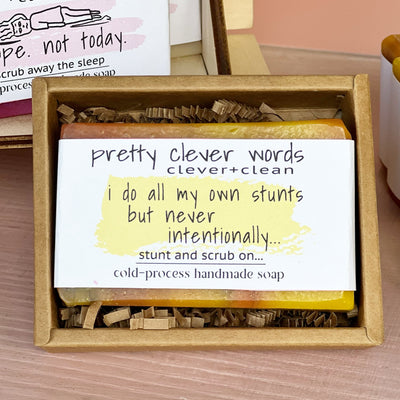 ope. not today.
scrub away the sleep
process handmade soap
pretty clever words
clever+clean
i do all my own stunts
but never
intentionally...
stunt and scrub on...
cold-process handmade soap